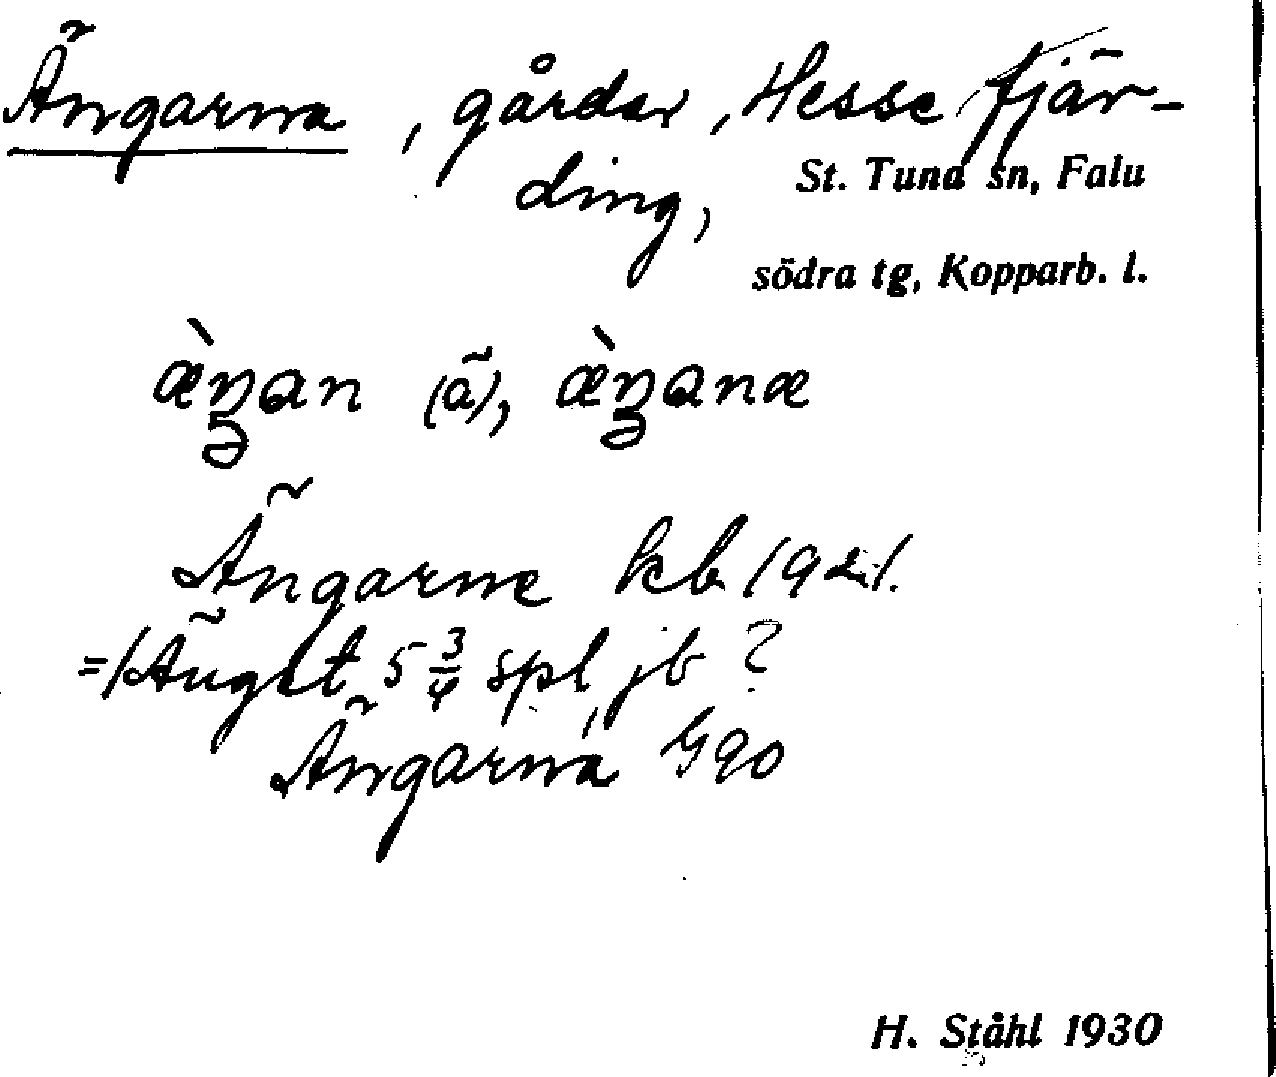 Ängarna, gårdar, Hesse fjär-
ding,
St. Tuna sn, Falu
södra tg, Kopparb. l.
æ̀ŋan (ä), æ̀ŋanæ
Ängarne kb 1921.
=/Änget 5 3/4 spl, jb ?
Ängarna G 90
H. Ståhl 1930